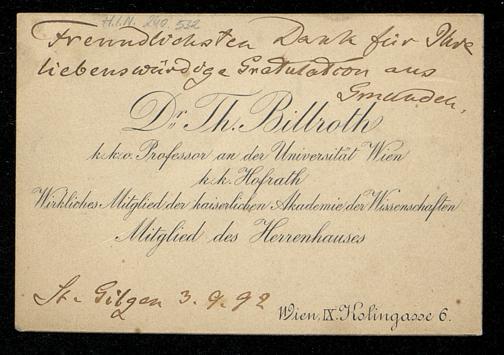 H.I.N. 240.532
Freundlichsten Dank für Ihre
liebenswürdige Gratulation aus
Gmunden.
Dr. Th. Billroth
k.k.o. Professor an der Universität Wien
k.k. Hofrath
Wirkliches Mitglied der kaiserlichen Akademie der Wissenschaften
Mitglied des Herrenhauses
St. Gilgen 3. 9. 92
Wien, IX. Kolingasse 6.